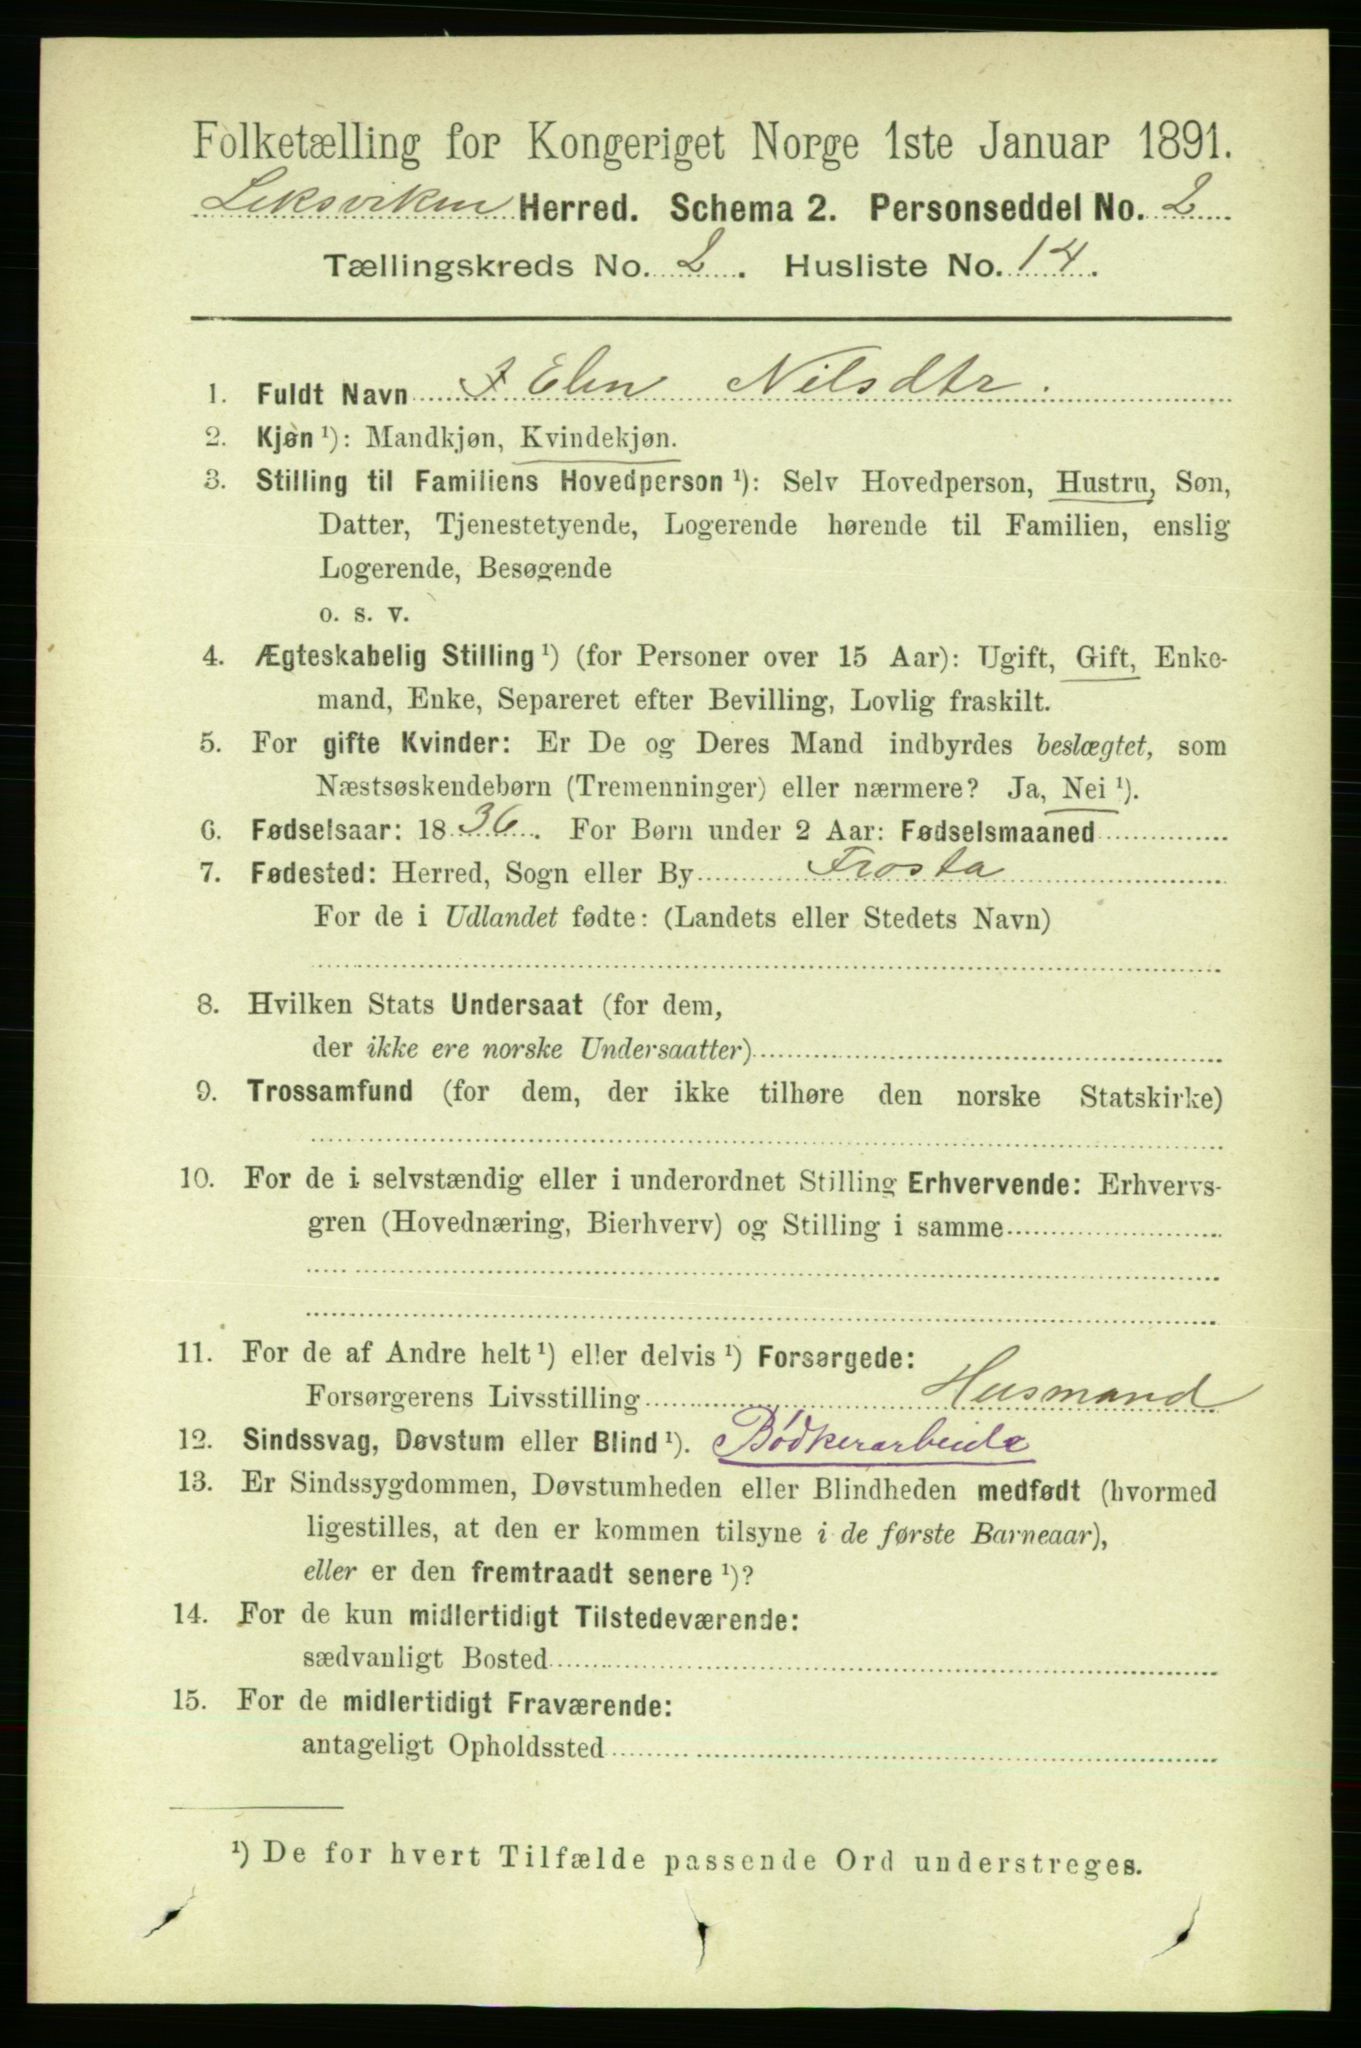 Folketælling for Kongeriget Norge 1ste Januar 1891.
Leksviken Herred. Schema 2. Personseddel No. 2
Tællingskreds No. 2. Husliste No. 14.
1. Fuldt Navn Elen Nilsdtr.
2. Kjøn ¹): Mandkjøn, Kvindekjøn.
3. Stilling til Familiens Hovedperson ¹): Selv Hovedperson, Hustru, Søn,
Datter, Tjenestetyende, Logerende hørende til Familien, enslig
Logerende, Besøgende
o. s. v.
4. Ægteskabelig Stilling ¹) (for Personer over 15 Aar): Ugift, Gift, Enke-
mand, Enke, Separeret efter Bevilling, Lovlig fraskilt.
5. For gifte Kvinder: Er De og Deres Mand indbyrdes beslægtet, som
Næstsøskendebørn (Tremenninger) eller nærmere? Ja, Nei ¹).
6. Fødselsaar: 1836. For Børn under 2 Aar: Fødselsmaaned
7. Fødested: Herred, Sogn eller By Frosta
For de i Udlandet fødte: (Landets eller Stedets Navn)
8. Hvilken Stats Undersaat (for dem,
der ikke ere norske Undersaatter)
9. Trossamfund (for dem, der ikke tilhøre den norske Statskirke)
10. For de i selvstændig eller i underordnet Stilling Erhvervende: Erhvervs-
gren (Hovednæring, Bierhverv) og Stilling i samme
11. For de af Andre helt ¹) eller delvis ¹) Forsørgede:
Forsørgerens Livsstilling Husmand
12. Sindssvag, Døvstum eller Blind ¹). Bödkerarbeide
13. Er Sindssygdommen, Døvstumheden eller Blindheden medfødt (hvormed
ligestilles, at den er kommen tilsyne i de første Barneaar),
eller er den fremtraadt senere ¹)?
14. For de kun midlertidigt Tilstedeværende:
sædvanligt Bosted
15. For de midlertidigt Fraværende:
antageligt Opholdssted
¹) De for hvert Tilfælde passende Ord understreges.